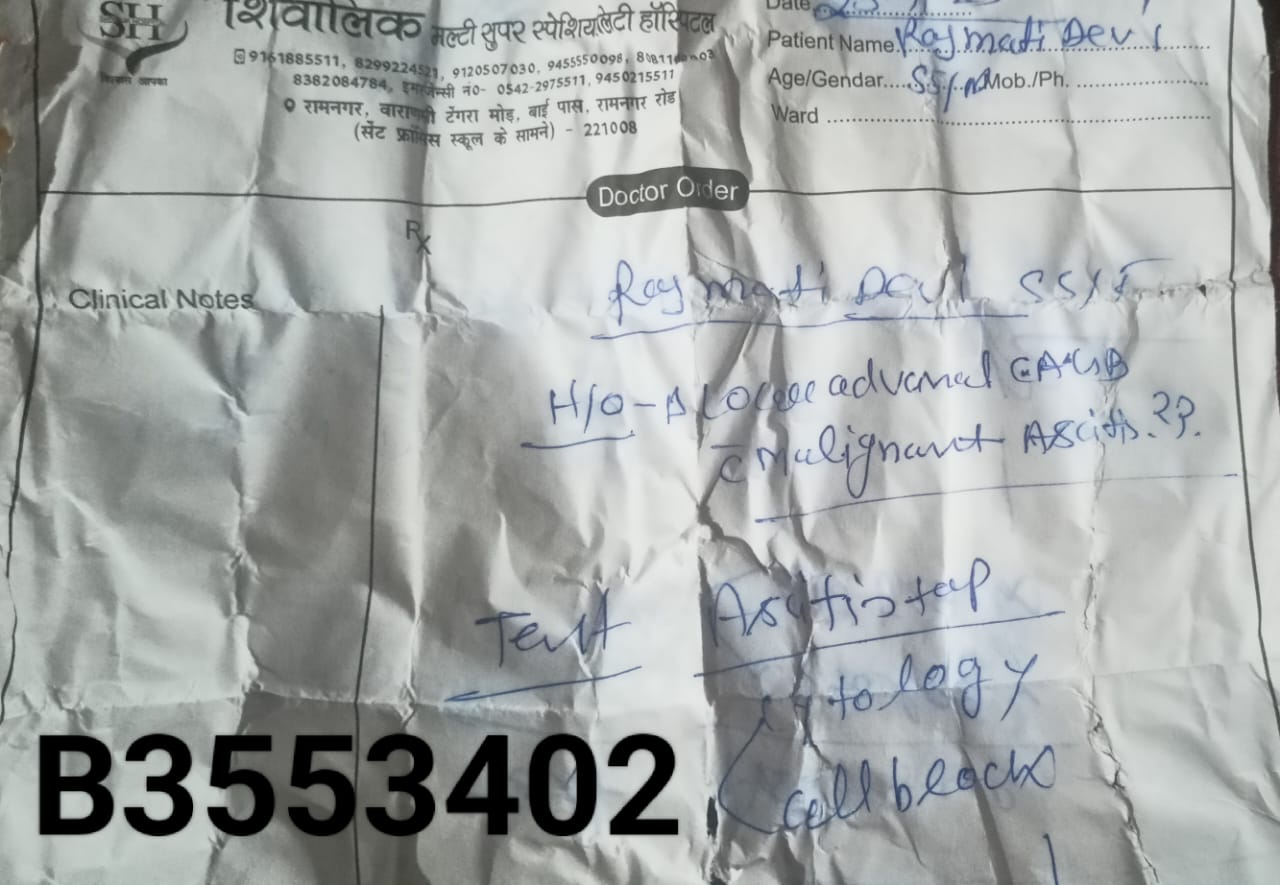 SH
शिवालिक मल्टी सुपर स्पेशियलिटी हॉस्पिटल
9161885511, 8299224521, 9120507030, 9455550098,
8382084784, इमरजेन्सी नं०- 0542-2975511, 9450215511
रामनगर, वाराणसी टेंगरा मोड़, बाई पास, रामनगर रोड
(सेंट फ्रांसिस स्कूल के सामने) - 221008
Date
Patient Name Rajmati Devi
Age/Gendar....55/ Mob./Ph.
Ward
Doctor Order
Rx
Clinical Notes
Rajmati Devi 55/F
H/O - advanced CA GB
c̄ Malignant Ascitis.??
Test Ascitis tap
cytology
cell block
B3553402